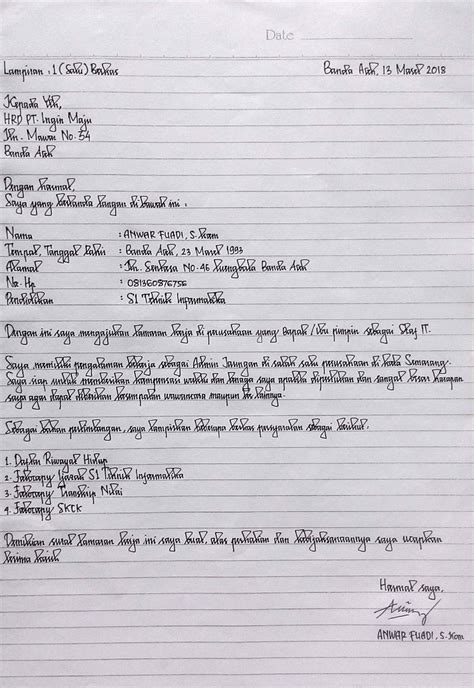 Date
Lampiran : 1 (Satu) Berkas
Banda Aceh, 13 Maret 2018
Kepada Yth,
HRD PT. Ingin Maju
Jln. Mawar No. 54
Banda Aceh
Dengan hormat,
Saya yang bertanda tangan di bawah ini :
Nama : ANWAR FUADI, S.Kom
Tempat, Tanggal Lahir : Banda Aceh, 23 Maret 1993
Alamat : Jln. Sentosa No.46 Banda Aceh
No. Hp : 081360876756
Pendidikan : S1 Teknik Informatika
Dengan ini saya mengajukan lamaran kerja di perusahaan yang Bapak / Ibu pimpin sebagai Staf IT.
Saya memiliki pengalaman bekerja sebagai Admin Jaringan di salah satu perusahaan di kota Semarang.
Saya siap untuk memberikan kompensasi waktu dan tenaga saya apabila diperlukan dan sangat besar harapan
saya agar dapat diberikan kesempatan wawancara maupun tes lainnya.
Sebagai bahan pertimbangan, saya lampirkan beberapa berkas persyaratan sebagai berikut:
1. Daftar Riwayat Hidup
2. Fotocopy Ijazah S1 Teknik Informatika
3. Fotocopy Transkip Nilai
4. Fotocopy SKCK
Demikian surat lamaran kerja ini saya buat, atas perhatian dan kebijaksanaannya saya ucapkan
terima kasih
Hormat saya,
ANWAR FUADI, S.Kom